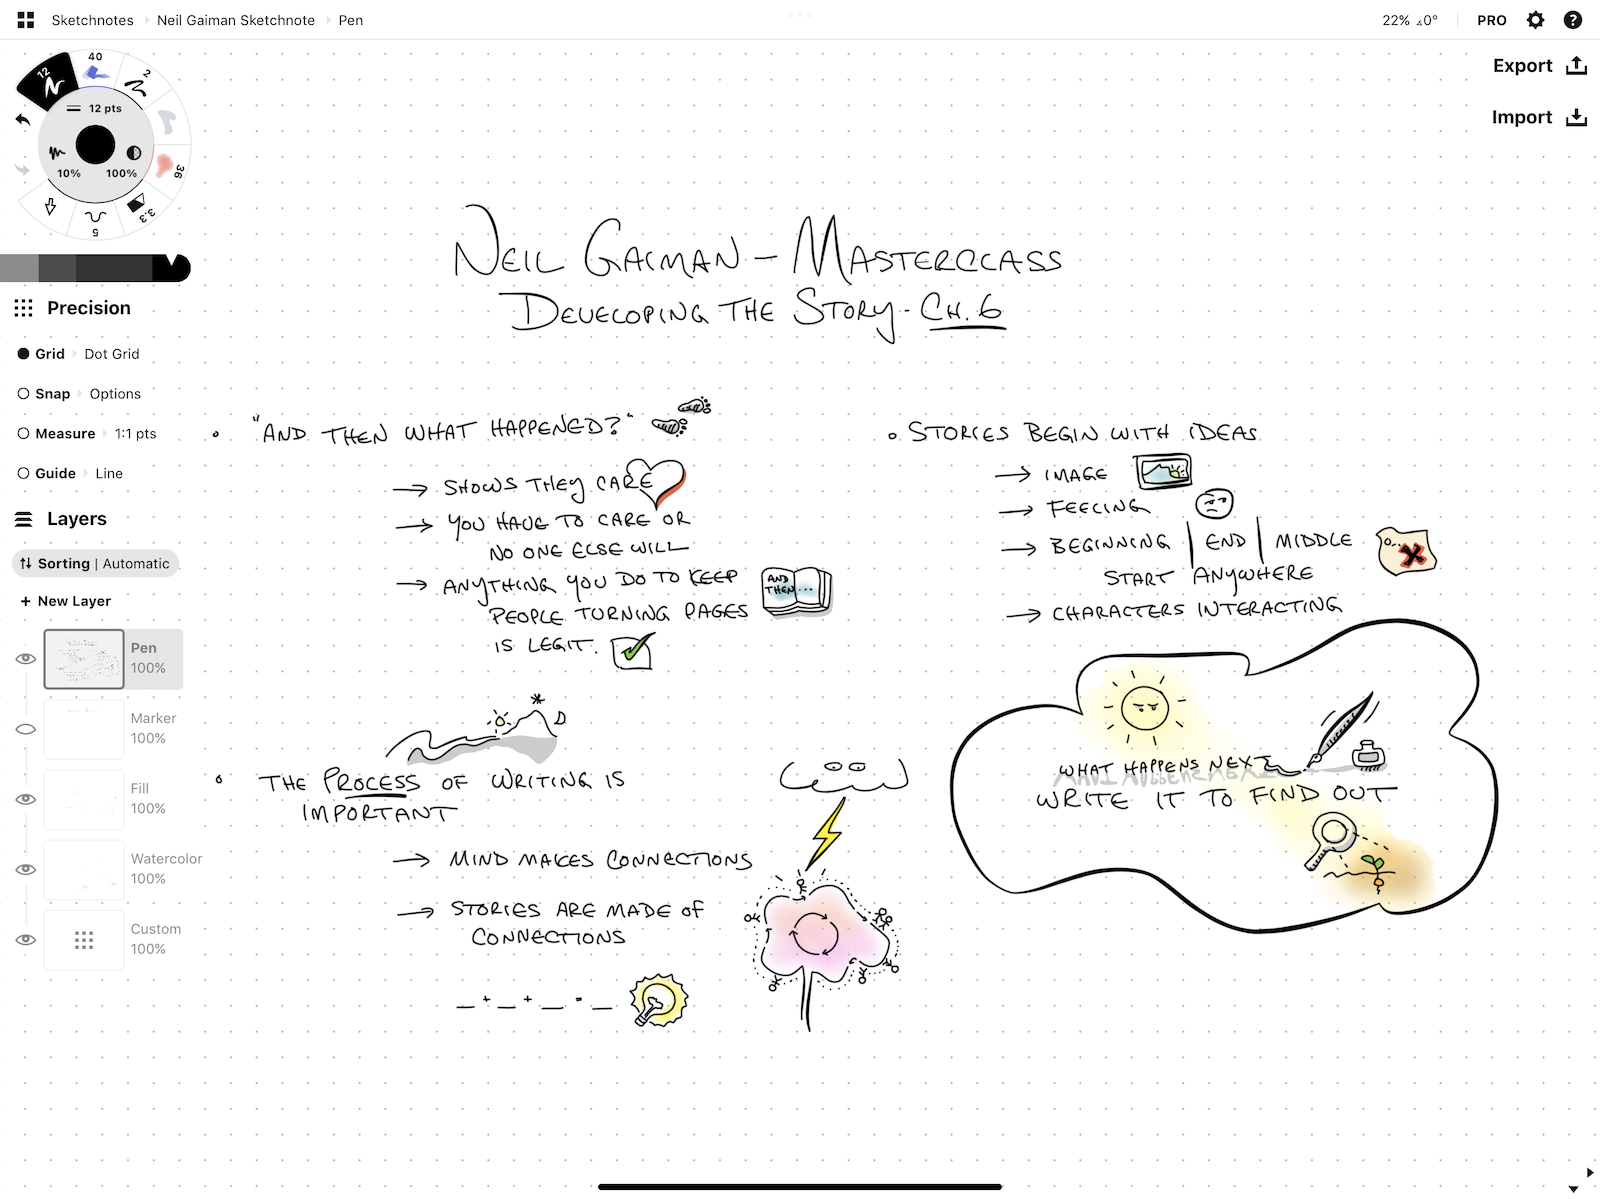 Sketchnotes Neil Gaiman Sketchnote Pen
22% 0° PRO ?
Export
Import
40
12
2
12 pts
10% 100%
36
3.3
5
Precision
Grid Dot Grid
Snap Options
Measure 1:1 pts
Guide Line
Layers
Sorting | Automatic
+ New Layer
Pen
100%
Marker
100%
Fill
100%
Watercolor
100%
Custom
100%
NEIL GAIMAN – MASTERCLASS
DEVELOPING THE STORY - CH. 6
"AND THEN WHAT HAPPENED?"
→ SHOWS THEY CARE
→ YOU HAVE TO CARE OR
NO ONE ELSE WILL
→ ANYTHING YOU DO TO KEEP
PEOPLE TURNING PAGES
IS LEGIT.
AND
THEN...
THE PROCESS OF WRITING IS
IMPORTANT
→ MIND MAKES CONNECTIONS
→ STORIES ARE MADE OF
CONNECTIONS
STORIES BEGIN WITH IDEAS
→ IMAGE
→ FEELING
→ BEGINNING | END | MIDDLE
START ANYWHERE
→ CHARACTERS INTERACTING
WHAT HAPPENS NEXT
WRITE IT TO FIND OUT